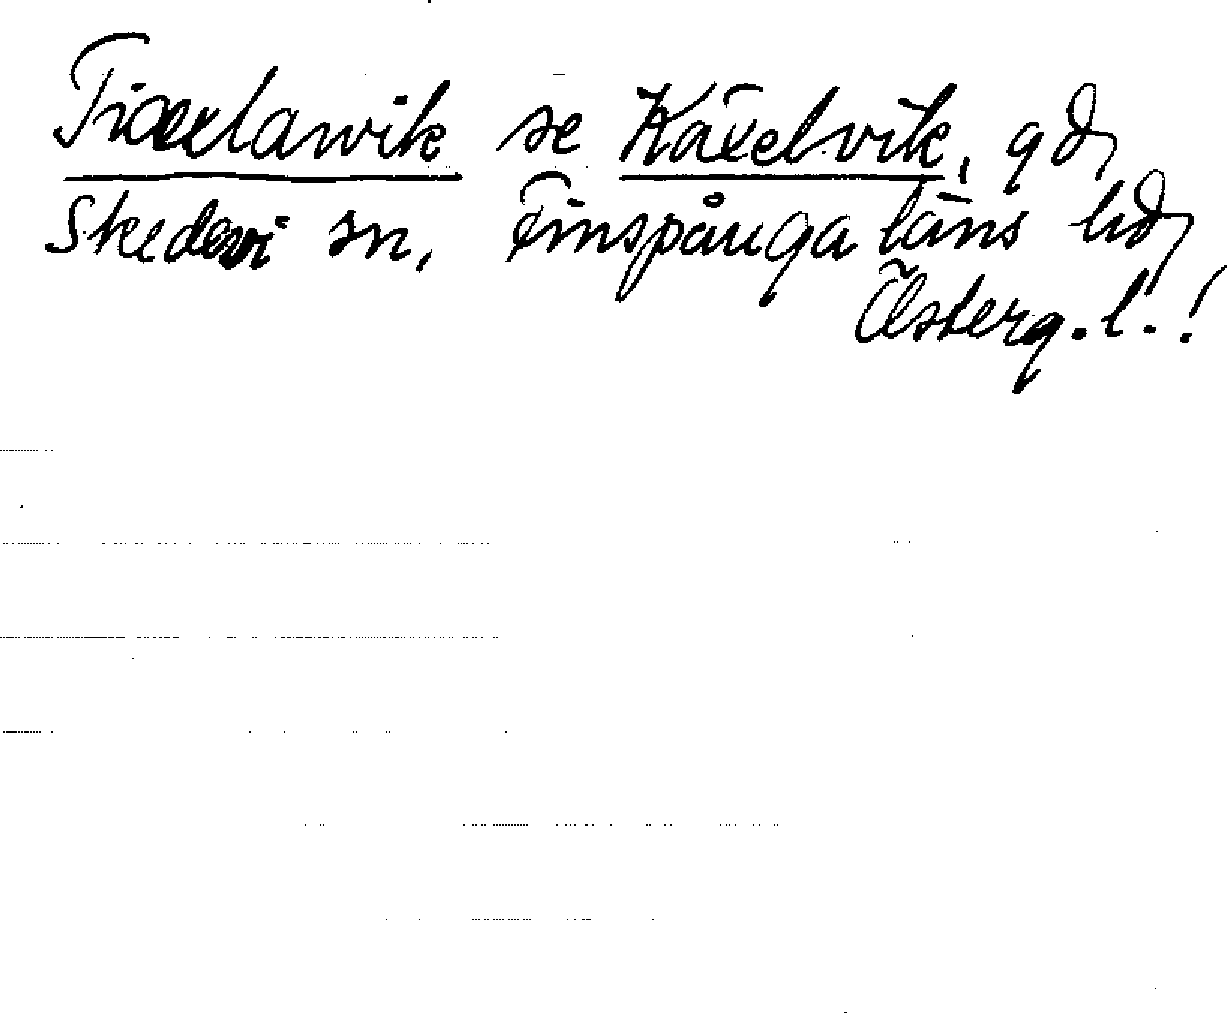 Tiæxlawik se Käxelvik, gd,
Skedevi sn, Finspånga läns hd,
Österg. l.!